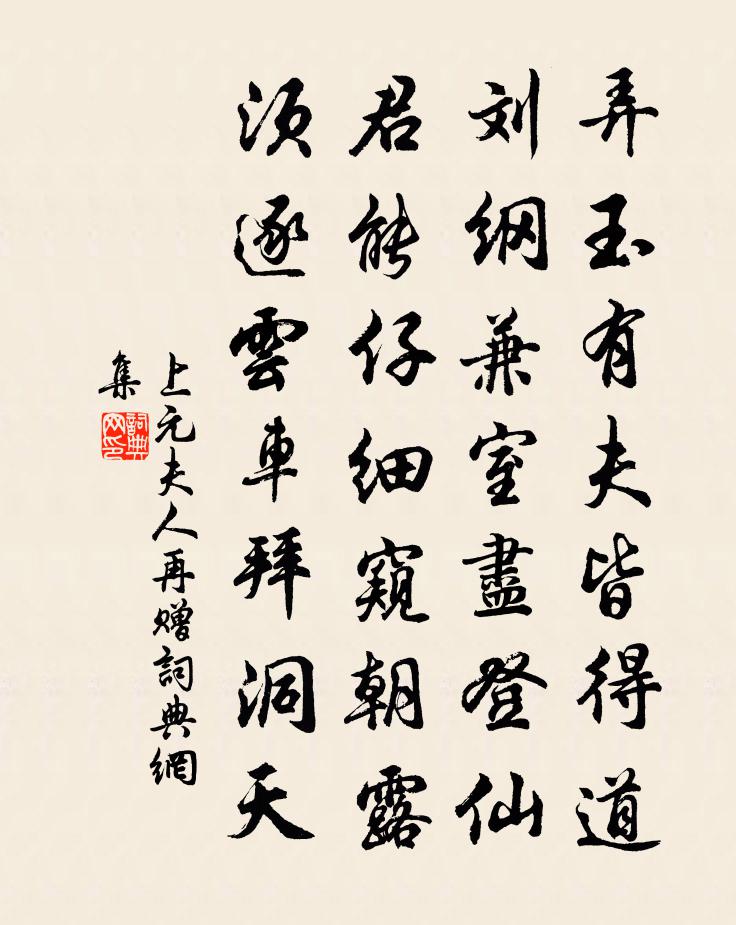 弄玉有夫皆得道
刘纲兼室盡登仙
君能仔细窺朝露
须逐雲車拜洞天
上元夫人再赠詞典網
集
詞典
网印